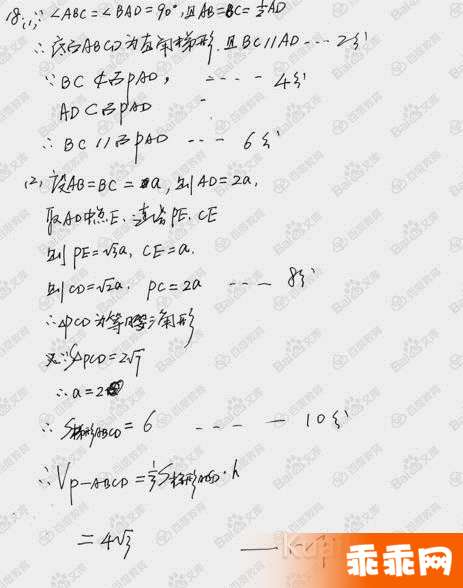 18.(1)∵∠ABC=∠BAD=90°,且AB=BC=½AD
∴底面ABCD为直角梯形,且BC//AD ---- 2分
∵BC⊄面PAD, ---- 4分
AD⊂面PAD
∴BC//面PAD --- 6分
(2)设AB=BC=a,则AD=2a,
取AD中点E,连接PE,CE
则PE=√3a,CE=a.
则CD=√2a,PC=2a ---- 8分
∴△PCD为等腰三角形
又∵S△PCD=2√7
∴a=2
∴S梯形ABCD=6 ---- 10分
∴V_{P-ABCD}=⅓S梯形ABCD·h
=4√3
乖乖网
Baidu文库
百度教育